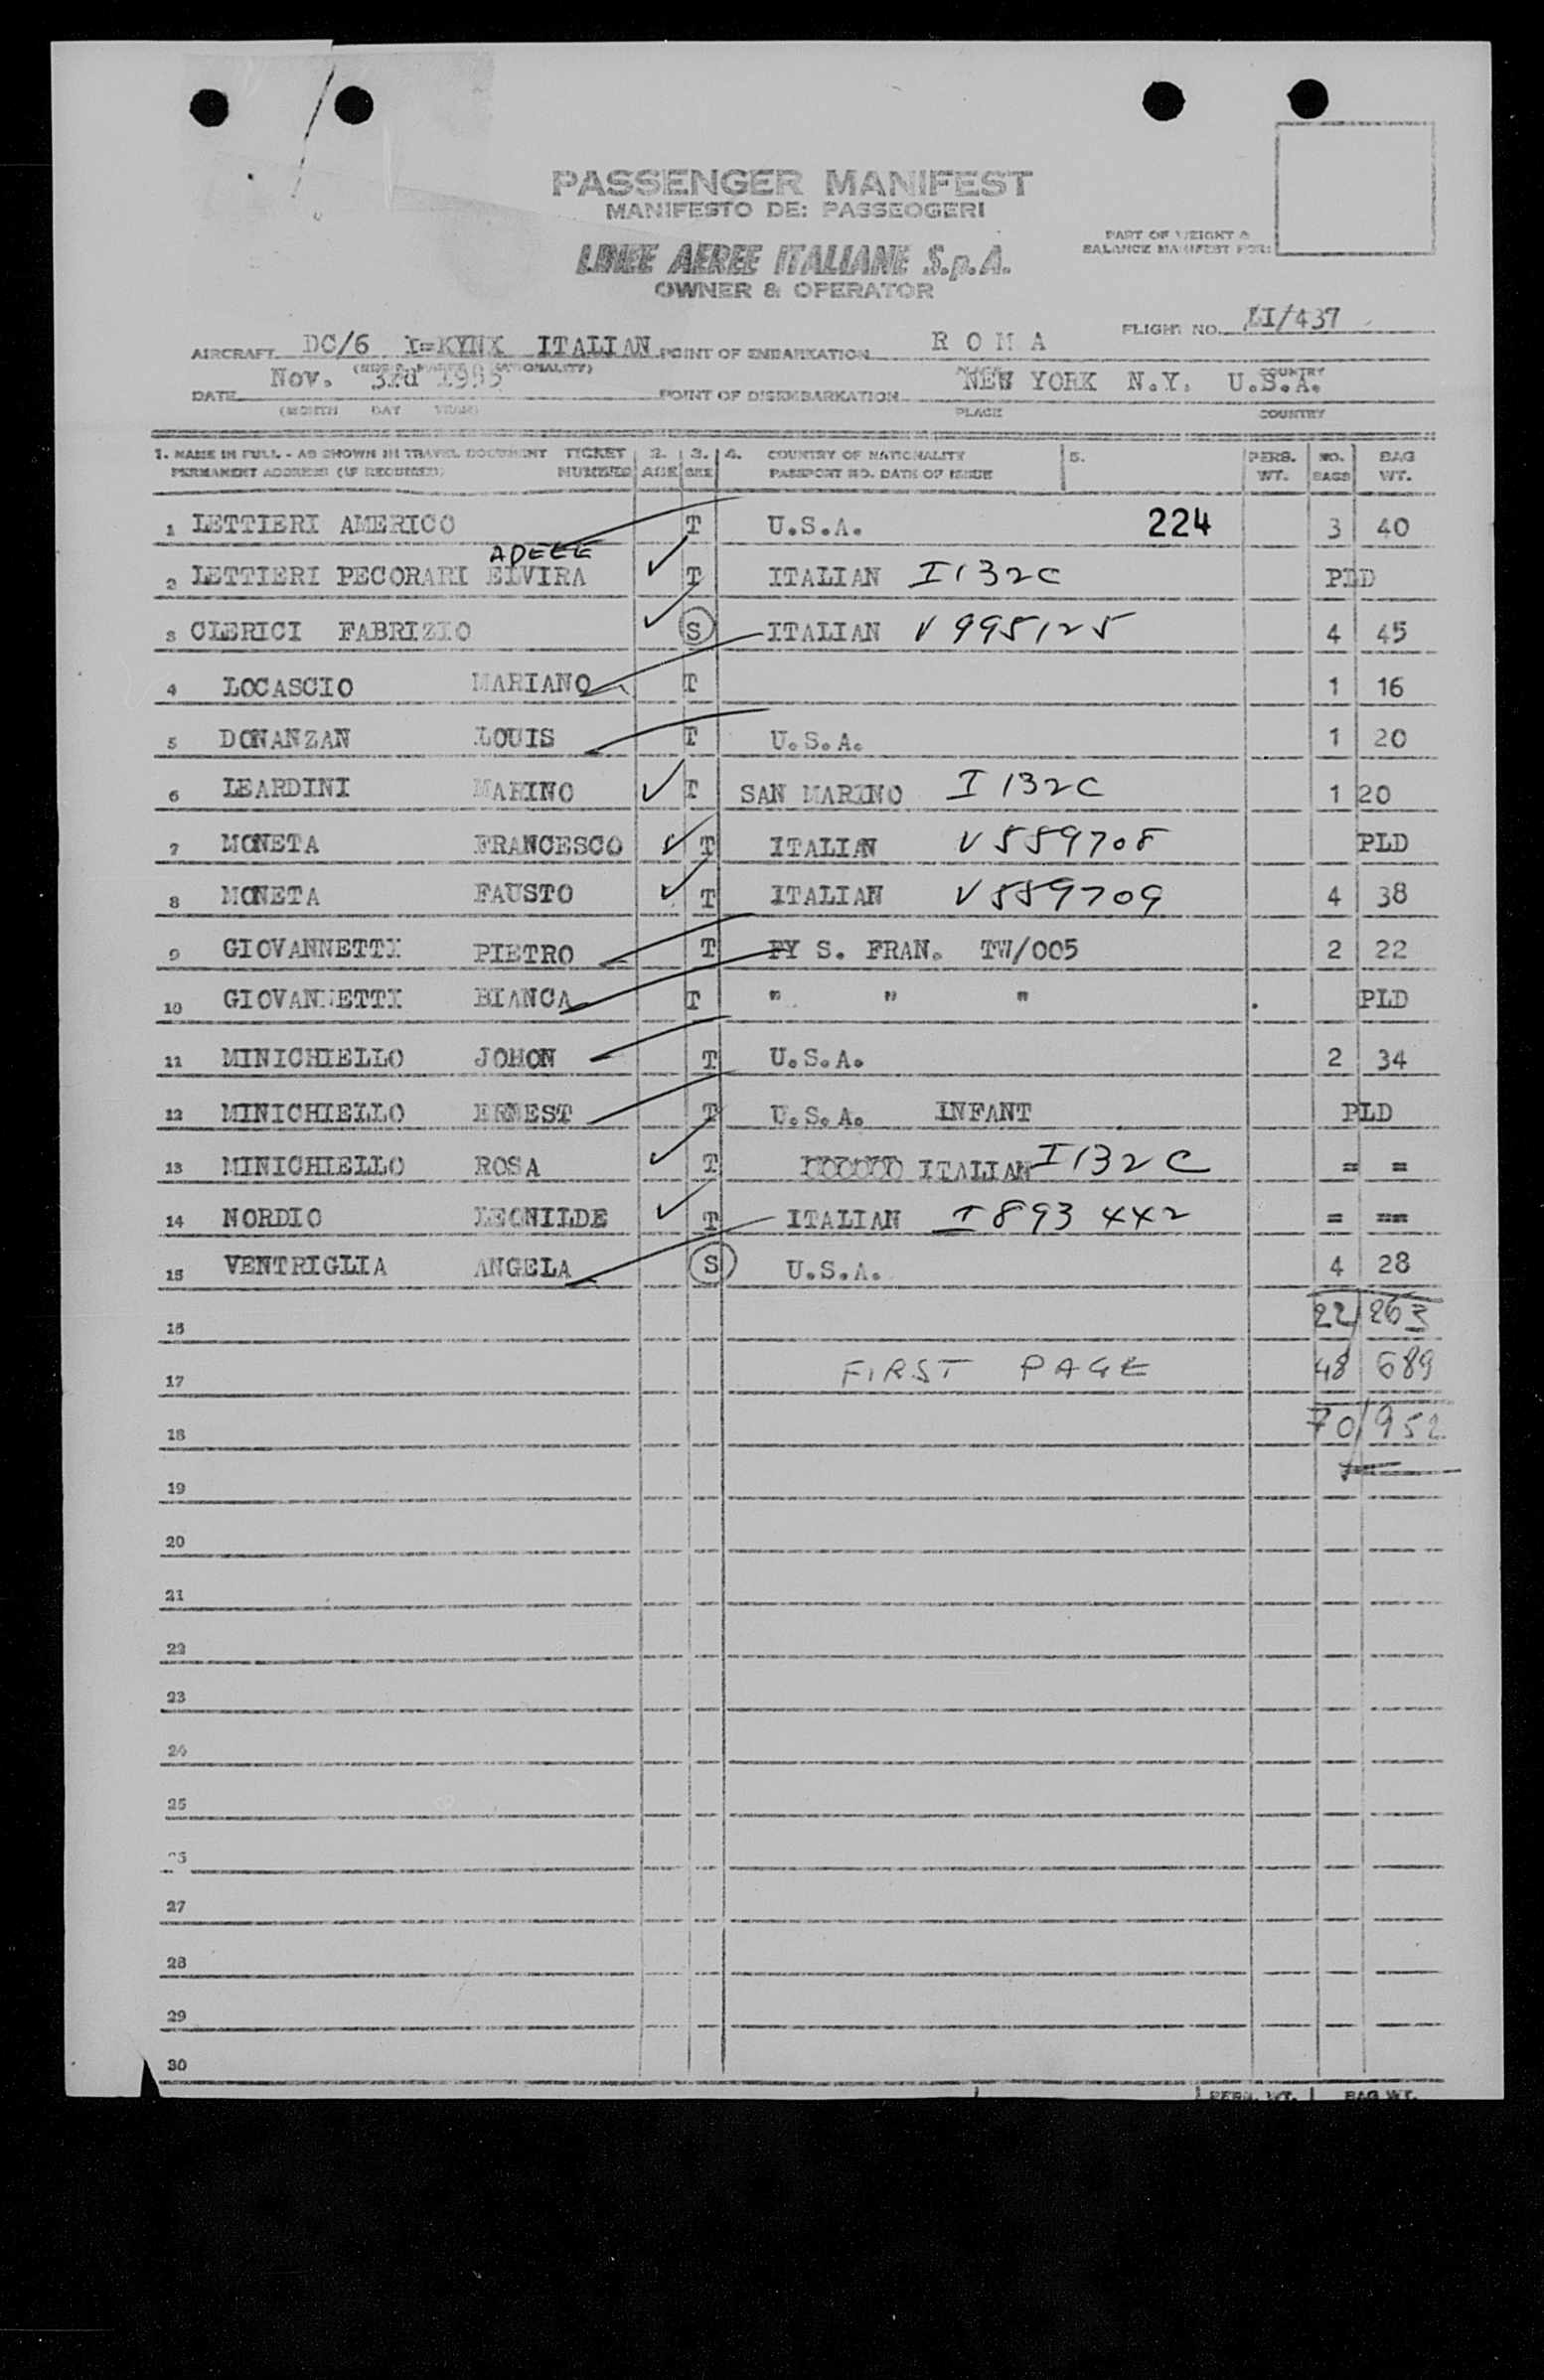 PASSENGER MANIFEST
MANIFESTO DE: PASSEOGERI
LINEE AEREE ITALIANE S.p.A.
OWNER & OPERATOR
PART OF WEIGHT &
BALANCE MANIFEST FOR:
FLIGHT NO. LI/437
AIRCRAFT DC/6 I=KYNX ITALIAN POINT OF EMBARKATION R O M A
DATE Nov. 3rd 1955 POINT OF DISEMBARKATION NEW YORK N.Y. U.S.A.
(MONTH DAY YEAR) PLACE COUNTRY
1. NAME IN FULL - AS SHOWN IN TRAVEL DOCUMENT TICKET 2. 3. 4. COUNTRY OF NATIONALITY 5. PERS. NO. BAG
PERMANENT ADDRESS (IF REQUIRED) NUMBER AGE SEX PASSPORT NO. DATE OF ISSUE WT. BAGS WT.
1 LETTIERI AMERICO T U.S.A. 224 3 40
ADELE
2 LETTIERI PECORARI ELVIRA T ITALIAN I132C PLD
3 CLERICI FABRIZIO S ITALIAN V995125 4 45
4 LOCASCIO MARIANO T 1 16
5 DONANZAN LOUIS T U.S.A. 1 20
6 LEARDINI MARINO T SAN MARINO I 132C 1 20
7 MONETA FRANCESCO T ITALIAN V559708 PLD
8 MONETA FAUSTO T ITALIAN V559709 4 38
9 GIOVANNETTI PIETRO T PY S. FRAN. TW/005 2 22
10 GIOVANNETTI BIANCA T " " " PLD
11 MINICHIELLO JOHON T U.S.A. 2 34
12 MINICHIELLO ERNEST T U.S.A. INFANT PLD
13 MINICHIELLO ROSA T ITALIAN I132C = =
14 NORDIO LEONILDE T ITALIAN I893442 = ==
15 VENTRIGLIA ANGELA S U.S.A. 4 28
16 22/263
17 FIRST PAGE 48 689
18 70/952
19
20
21
22
23
24
25
27
28
29
30
PERM. WT. BAG WT.